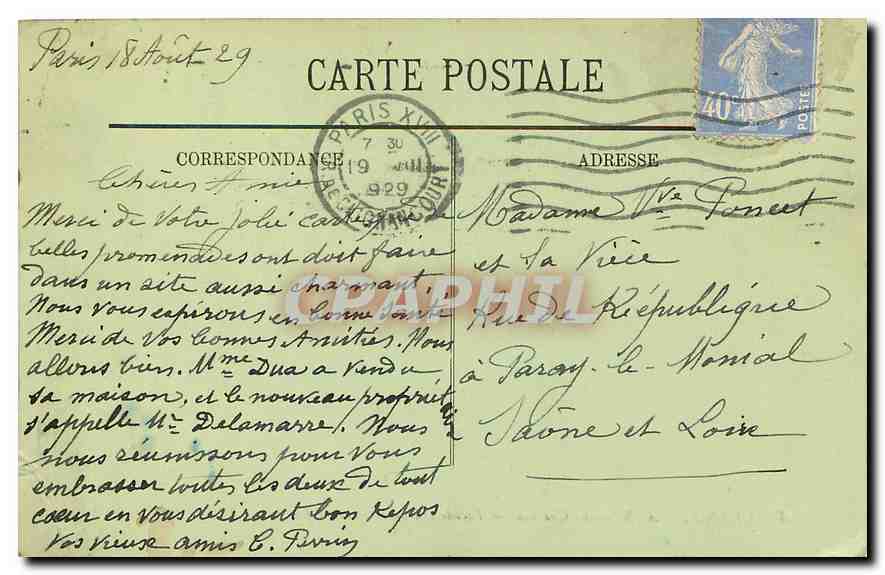 Paris 18 Août 29
CARTE POSTALE
40
POSTES
PARIS XVII
7 30
19 VIII
1929
CORRESPONDANCE
ADRESSE
Chères Amie
Merci de votre jolie carte
belles promenades ont doit faire
dans un site aussi charmant.
Nous vous espérons en bonne santé
Merci de vos bonnes Amitiés. Nous
allons bien. Mme Dua a vendu
sa maison, et le nouveau propriétaire
s'appelle Mr Delamarre. Nous
nous réunissons pour vous
embrasser toutes les deux de tout
cœur en vous désirant bon Repos
Vos vieux amis C. Perrin
Madame Vve Poncet
et sa Nièce
Rue de République
à Paray-le-Monial
Saône et Loire
CPAPHIL